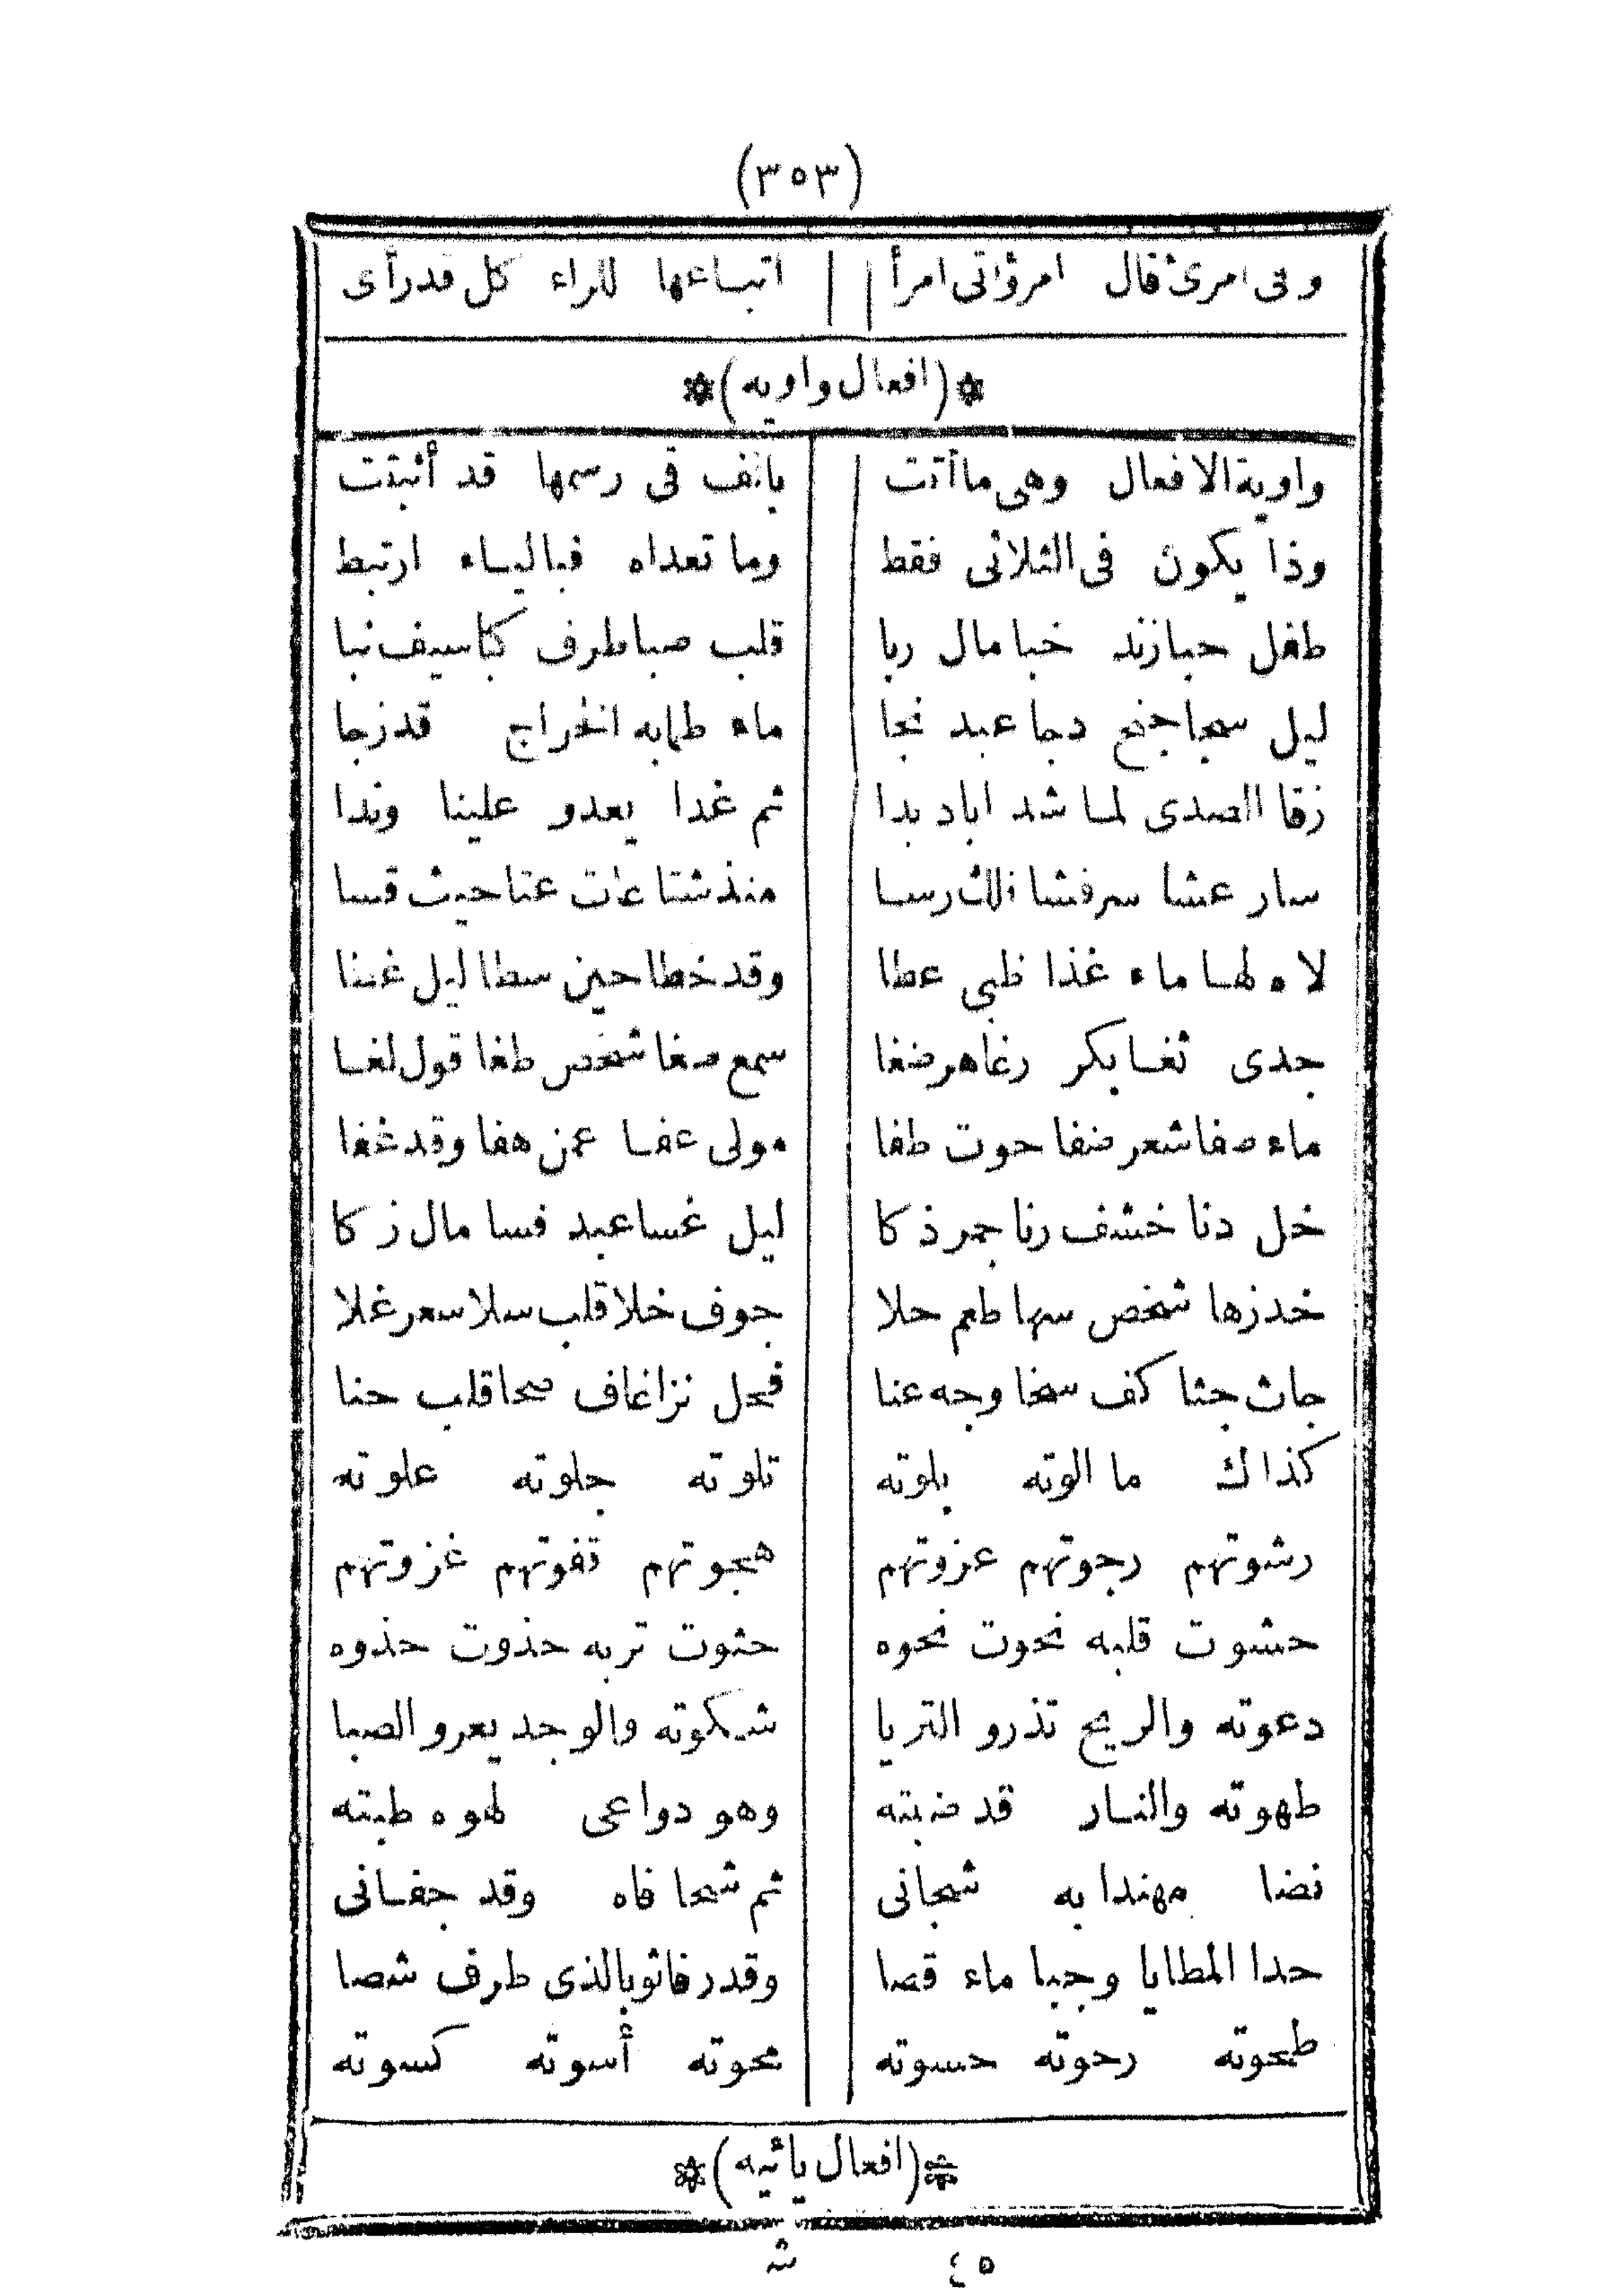 (٣٥٣)
وفى امرئ قال امرؤ اتى امرأ | اتباعها للراء كل قد رأى
(افعال واويه)
واوية الافعال وهى ما أتت | بالف فى رسمها قد أثبتت
وذا يكون فى الثلاثى فقط | وما تعداه فبالياء ارتبط
طفل حبا زند خبا مال ربا | قلب صبا طرف كبا سيف نبا
ليل سجا جنح دجا عبد نجا | ماء طما به الخراج قد زجا
زقا الصدى لما شدا باد بدا | ثم غدا يعدو علينا وندا
سار عشا سر فشا فلك رسا | منذ شتا عات عتا حيث قسا
لاه لها ماء غذا ظبى عطا | وقد خطا حين سطا ليل غطا
جدى ثغا بكر رغا هر ضغا | سمع صغا شخص طغا قول لغا
ماء صفا شعر ضفا حوت طفا | مولى عفا عمن هفا وقد غفا
خل دنا خشف رنا جمر ذكا | ليل غسا عبد فسا مال زكا
خد زها شخص سها طعم حلا | جوف خلا قلب سلا سعر غلا
جاث جثا كف سخا وجه عنا | فحل نزا غاف صحا قلب حنا
كذاك ما الوته بلوته | تلوته جلوته علوته
رشوتهم رجوتهم عزوتهم | هجوتهم قفوتهم غزوتهم
حشوت قلبه نحوت نحوه | حثوت تربه حذوت حذوه
دعوته والريح تذرو التربا | شكوته والوجد يعرو الصبا
طهوته والنار قد ضبته | وهو دواعى لهوه طبته
نضا مهندا به شجانى | ثم شحا فاه وقد جفانى
حدا المطايا وجبا ماء قصا | وقد رفا ثوبا لذى طرف شصا
طحوته رحوته حسوته | محوته أسوته كسوته
(افعال يائيه)
٤٥ ش